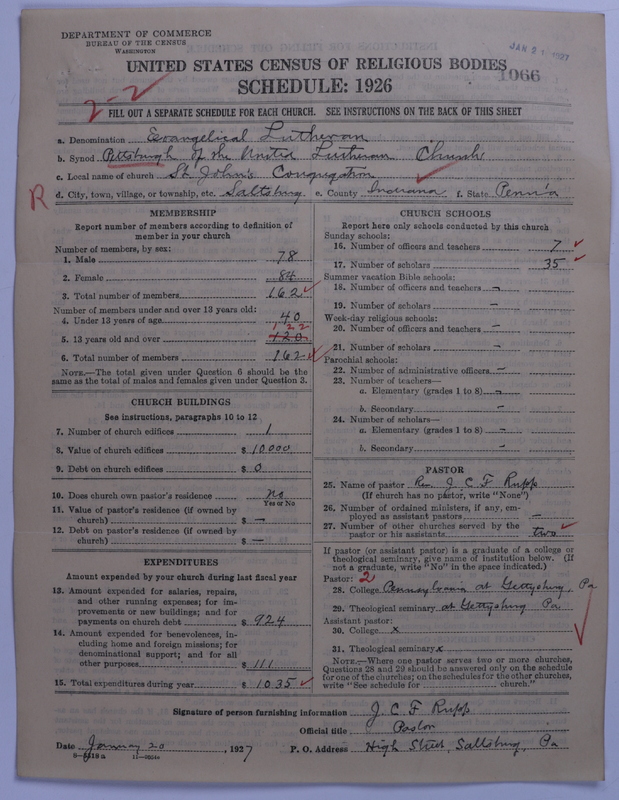 DEPARTMENT OF COMMERCE
BUREAU OF THE CENSUS
WASHINGTON
JAN 21 1927
UNITED STATES CENSUS OF RELIGIOUS BODIES
1066
SCHEDULE: 1926
2-2
FILL OUT A SEPARATE SCHEDULE FOR EACH CHURCH. SEE INSTRUCTIONS ON THE BACK OF THIS SHEET
a. Denomination Evangelical Lutheran
b. Synod Pittsburgh of the United Lutheran Church
c. Local name of church St. John's Congregation
R
d. City, town, village, or township, etc. Saltsburg e. County Indiana f. State Penn'a
MEMBERSHIP
Report number of members according to definition of
member in your church
Number of members, by sex:
1. Male 78
2. Female 84
3. Total number of members 162
Number of members under and over 13 years old:
4. Under 13 years of age 40
122
5. 13 years old and over 120
6. Total number of members 162
NOTE.—The total given under Question 6 should be the
same as the total of males and females given under Question 3.
CHURCH BUILDINGS
See instructions, paragraphs 10 to 12
7. Number of church edifices 1
8. Value of church edifices $ 10000
9. Debt on church edifices $ 0
10. Does church own pastor's residence no
Yes or No
11. Value of pastor's residence (if owned by
church) $ —
12. Debt on pastor's residence (if owned by
church) $ —
EXPENDITURES
Amount expended by your church during last fiscal year
13. Amount expended for salaries, repairs,
and other running expenses; for im-
provements or new buildings; and for
payments on church debt $ 924
14. Amount expended for benevolences, in-
cluding home and foreign missions; for
denominational support; and for all
other purposes $ 111
15. Total expenditures during year $ 1035
CHURCH SCHOOLS
Report here only schools conducted by this church
Sunday schools:
16. Number of officers and teachers 7
17. Number of scholars 35
Summer vacation Bible schools:
18. Number of officers and teachers —
19. Number of scholars —
Week-day religious schools:
20. Number of officers and teachers —
21. Number of scholars —
Parochial schools:
22. Number of administrative officers —
23. Number of teachers—
a. Elementary (grades 1 to 8) —
b. Secondary —
24. Number of scholars—
a. Elementary (grades 1 to 8) —
b. Secondary —
PASTOR
25. Name of pastor Rev. J. C. F. Rupp
(If church has no pastor, write "None")
26. Number of ordained ministers, if any, em-
ployed as assistant pastors —
27. Number of other churches served by the
pastor or his assistants two
If pastor (or assistant pastor) is a graduate of a college or
theological seminary, give name of institution below. (If
not a graduate, write "No" in the space indicated.)
Pastor: 2
28. College Pennsylvania at Gettysburg, Pa
29. Theological seminary at Gettysburg Pa.
Assistant pastor:
30. College x
31. Theological seminary x
NOTE.—Where one pastor serves two or more churches,
Questions 28 and 29 should be answered only on the schedule
for one of the churches; on the schedules for the other churches,
write "See schedule for church."
Signature of person furnishing information J. C. F. Rupp
Official title Pastor
Date January 20, 1927 P. O. Address High Street, Saltsburg, Pa
8—5418 a 11—9351a